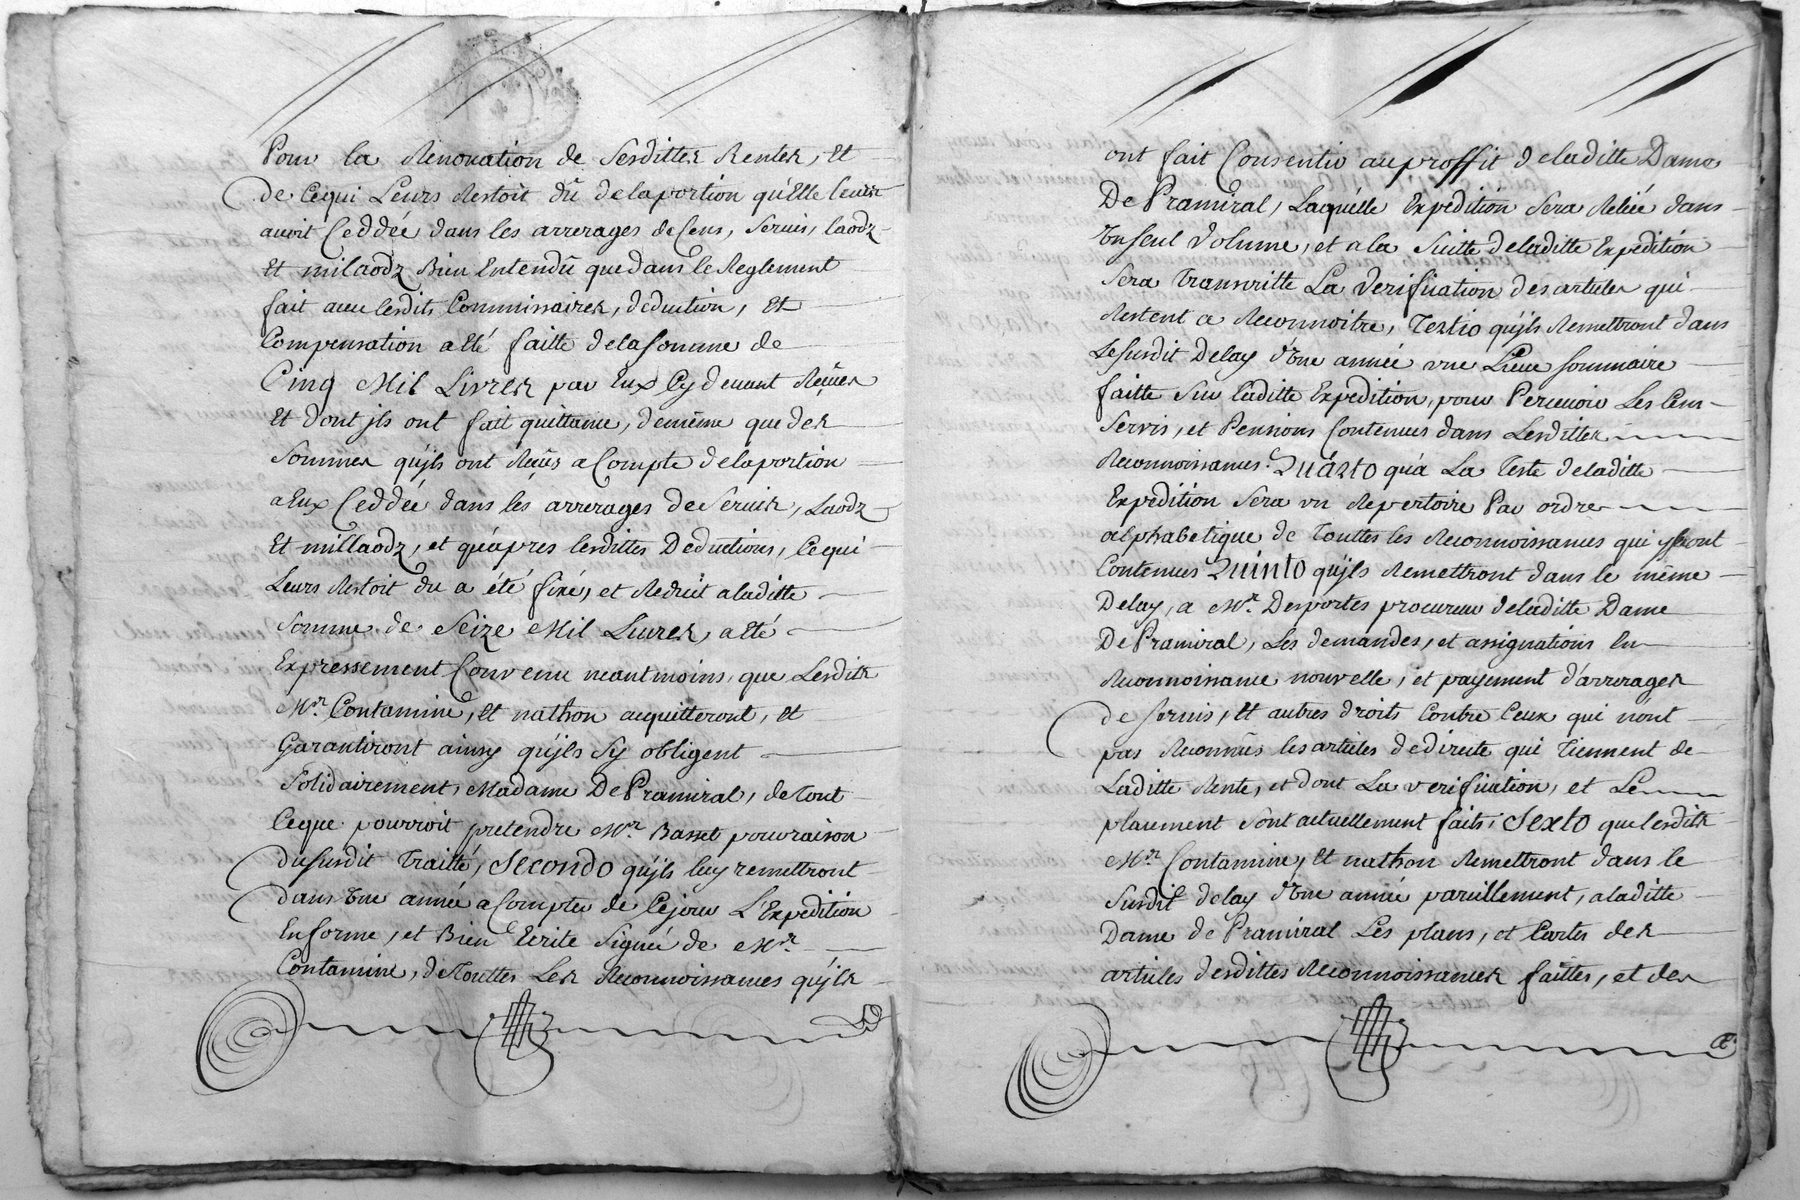 Pour la Renovation de Sesdittes Rentes, Et
de Cequi Leurs Restoit dû delaportion qu'Elle leurs
avoit Ceddée dans les arrerages de Cens, Servis, laodz
Et milaodz Bien Entendû quedans le Reglement
fait avec lesdits Commissaires, deduction, Et
Compensation a Eté faitte delasomme de
Cinq Mil Livres par Eux Cy devant Reçues
Et dont jls ont fait quittance, demême que des
Sommes qu'jls ont Reçûs acompte delaportion
a Eux Ceddée dans les arrerages de Servis, Laodz
Et millaodz, et qu'apres lesdittes Deductions, Cequi
Leurs Restoit du a été fixé, et Reduit aladitte
Somme de Seize Mil Livres, a Eté
Expressement Convenu neantmoins, que Lesdits
Mrs. Contamine, Et nathon acquitteront, et
Garantiront ainsy qu'jls sy obligent
Solidairement, Madame De Pramiral, de tout
Ceque pourroit pretendre Mr. Basset pour raison
dusurdit Traitté, Secondo qu'jls luy remettront
dans une année a Compter de Cejour L'Expedition
En forme, et Bien Ecrite Signée de Mr.
Contamine, de Touttes Les Reconnoissances qu'jls
ont fait Consentir au proffit deladitte Dame
De Pramiral, Laquelle Expédition Sera Reliée dans
un seul volume, et ala Suitte deladitte Expedition
Sera Transcritte La Verification des articles qui
Restent a Reconnoitre, Tertio qu'jls Remettront dans
Lesusdit Delay d'une année une Lieve Sommaire
faitte Sur laditte Expedition, pour Percevoir Les Cens
Servis, et Pensions Contenues dans Lesdittes
Reconnoissances. Quarto qu'a La Teste deladitte
Expedition Sera un Repertoire Par ordre
alphabetique de Touttes les Reconnoissances qui y sont
Contenues Quinto qu'jls Remettront dans le même
Delay, a Mr. Desportes procureur deladitte Dame
De Pramiral, Les demandes, et assignations En
Reconnoissance nouvelle, et payement d'arrerages
de Servis, Et autres droits Contre Ceux qui n'ont
pas Reconnûs les articles dedirecte qui Tiennent de
Laditte Rente, et dont La verification, et Le
placement Sont actuellement faits, Sexto que lesdits
Mrs. Contamine, Et nathon Remettront dans le
Susdit delay d'une année pareillement, aladitte
Dame de Pramiral Les plans, et Cartes des
articles desdittes Reconnoissances faittes, et des